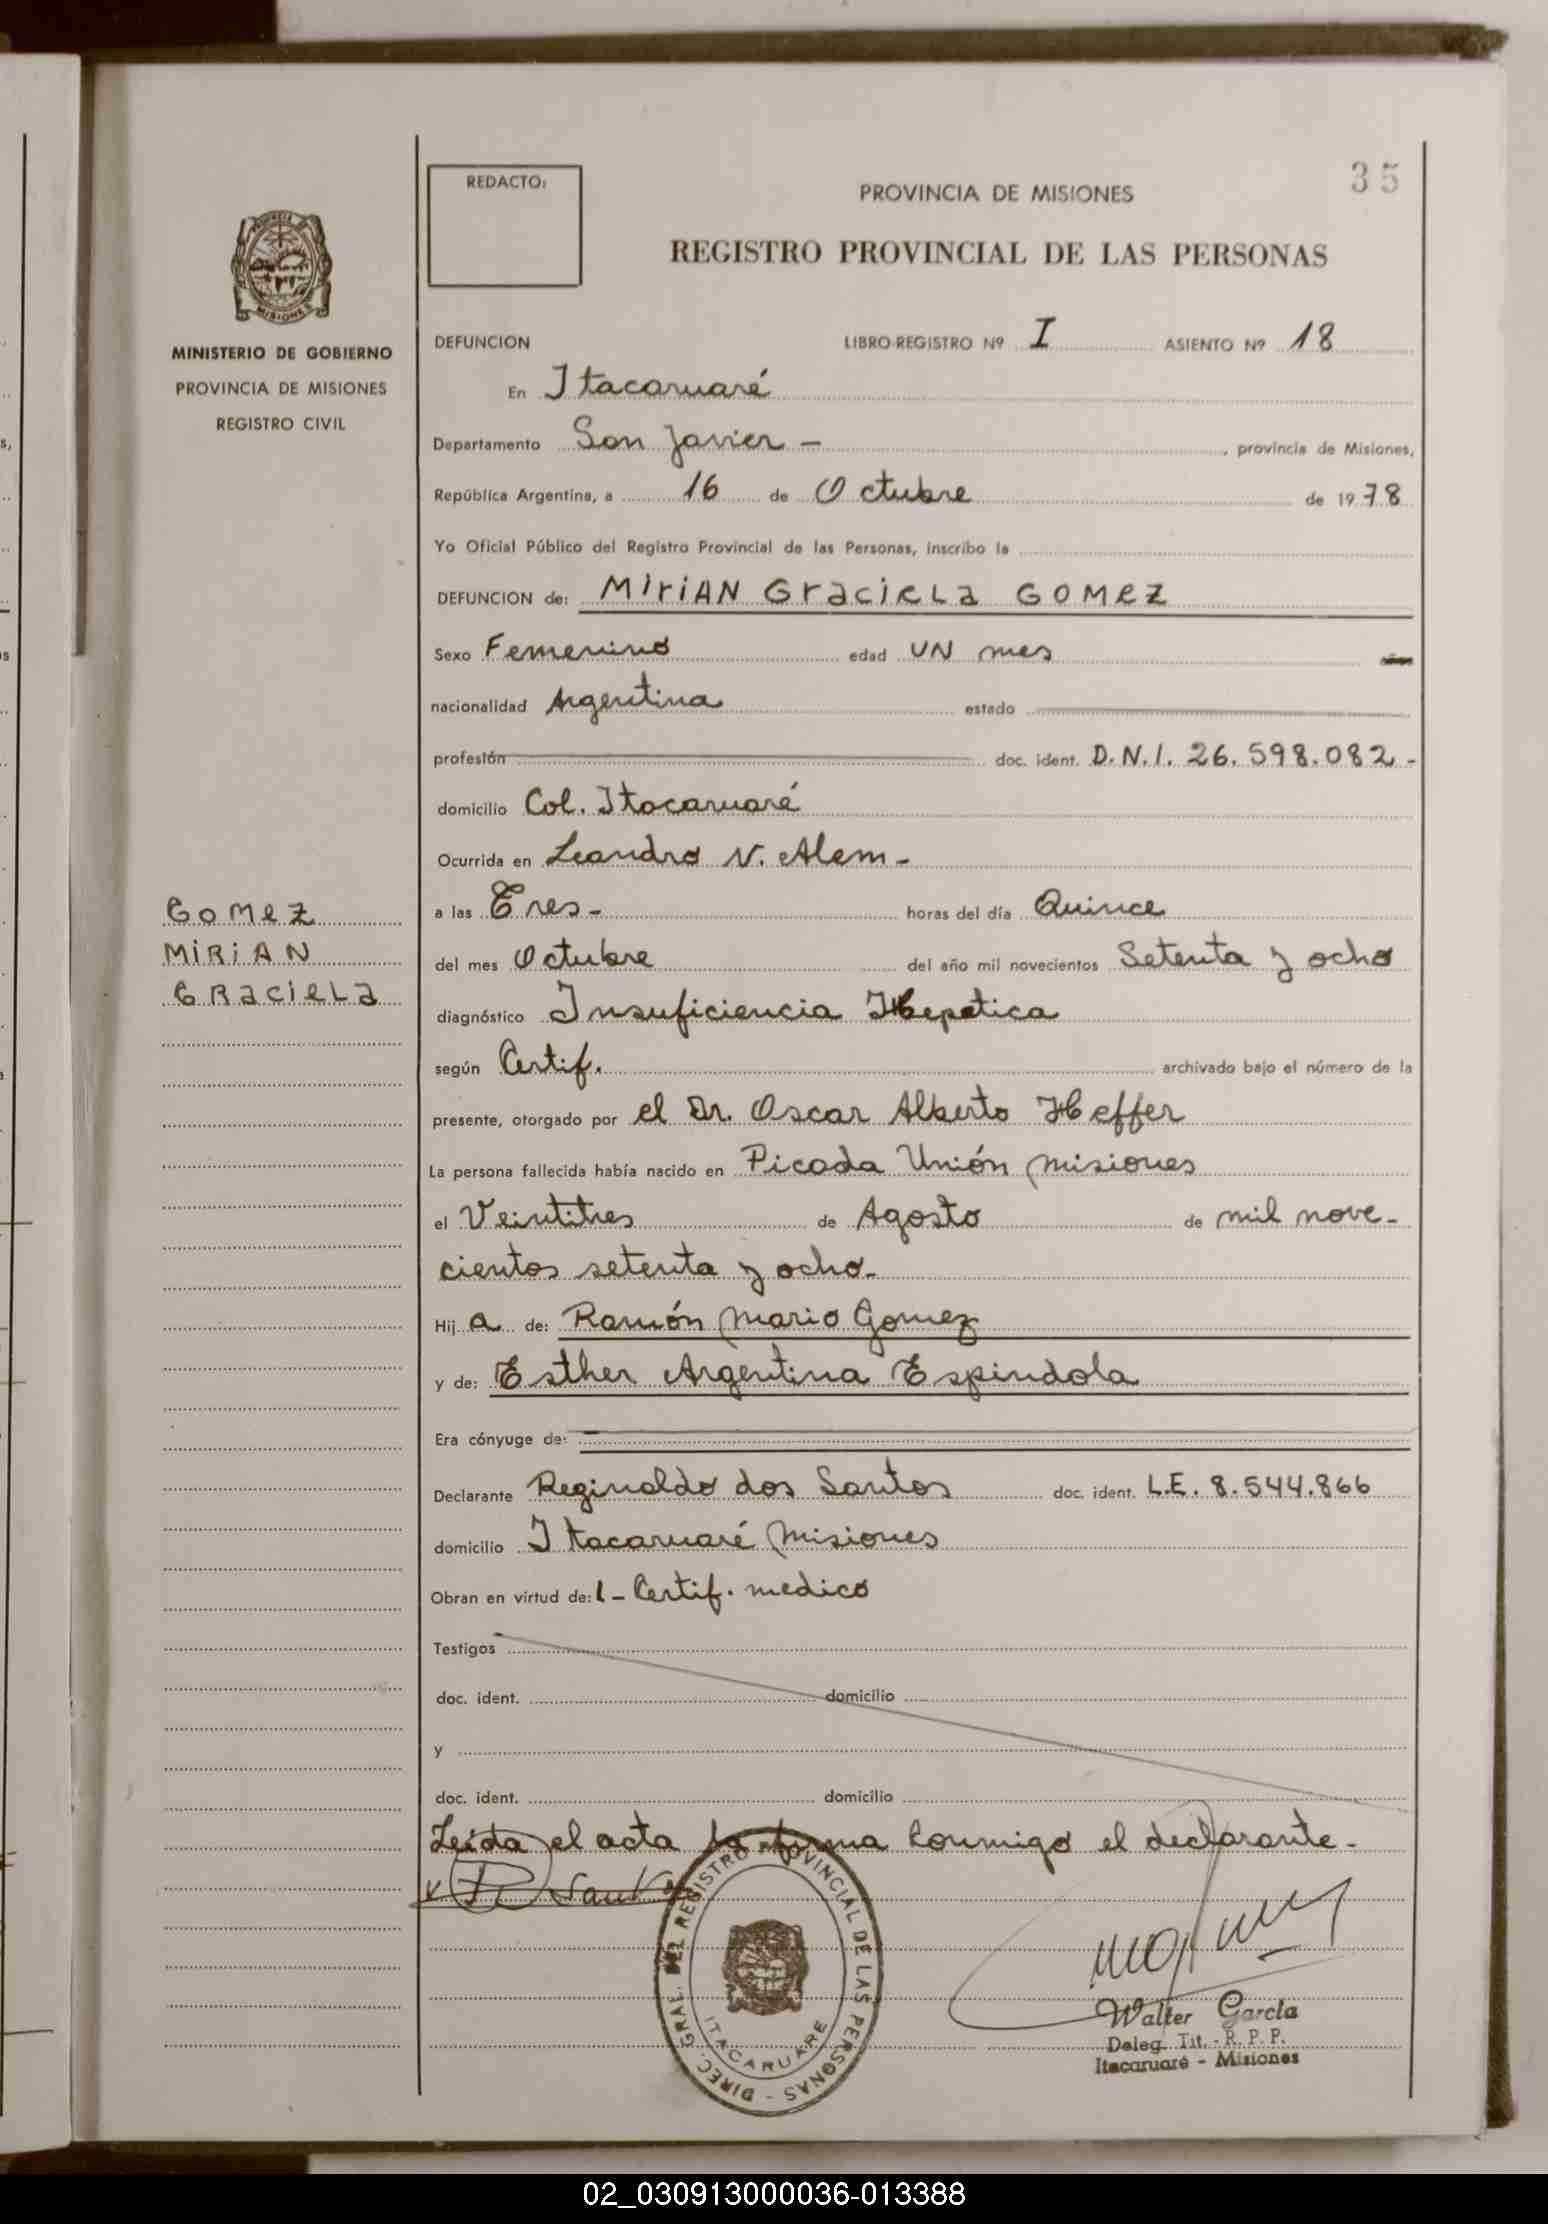 35
REDACTO:
PROVINCIA DE MISIONES
REGISTRO PROVINCIAL DE LAS PERSONAS
MISIONES
MINISTERIO DE GOBIERNO
PROVINCIA DE MISIONES
REGISTRO CIVIL
DEFUNCION LIBRO-REGISTRO Nº I ASIENTO Nº 18
En Itacaruaré
Departamento San Javier - , provincia de Misiones,
República Argentina, a 16 de Octubre de 1978
Yo Oficial Público del Registro Provincial de las Personas, inscribo la
DEFUNCION de: MIRIAN GRACIELA GOMEZ
Sexo Femenino edad UN mes
nacionalidad Argentina estado
profesión doc. ident. D.N.I. 26.598.082 -
domicilio Col. Itacaruaré
Ocurrida en Leandro N. Alem -
a las Tres - horas del día Quince
del mes Octubre del año mil novecientos Setenta y ocho
diagnóstico Insuficiencia Hepatica
según Certif. archivado bajo el número de la
presente, otorgado por el Dr. Oscar Alberto Heffer
La persona fallecida había nacido en Picada Unión Misiones
el Veintitres de Agosto de mil nove-
cientos setenta y ocho-
Hij a de: Ramón Mario Gomez
y de: Esther Argentina Espindola
Era cónyuge de:
Declarante Reginaldo dos Santos doc. ident. L.E. 8.544.866
domicilio Itacaruaré Misiones
Obran en virtud de: 1 - Certif. medico
Testigos
doc. ident. domicilio
y
doc. ident. domicilio
Leida el acta la firma conmigo el declarante -
GOMEZ
MIRIAN
GRACIELA
DIREC. GRAL. DEL REGISTRO PROVINCIAL DE LAS PERSONAS -
ITACARUARE
Walter García
Deleg. Tit. - R. P. P.
Itacaruaré - Misiones
02_030913000036-013388